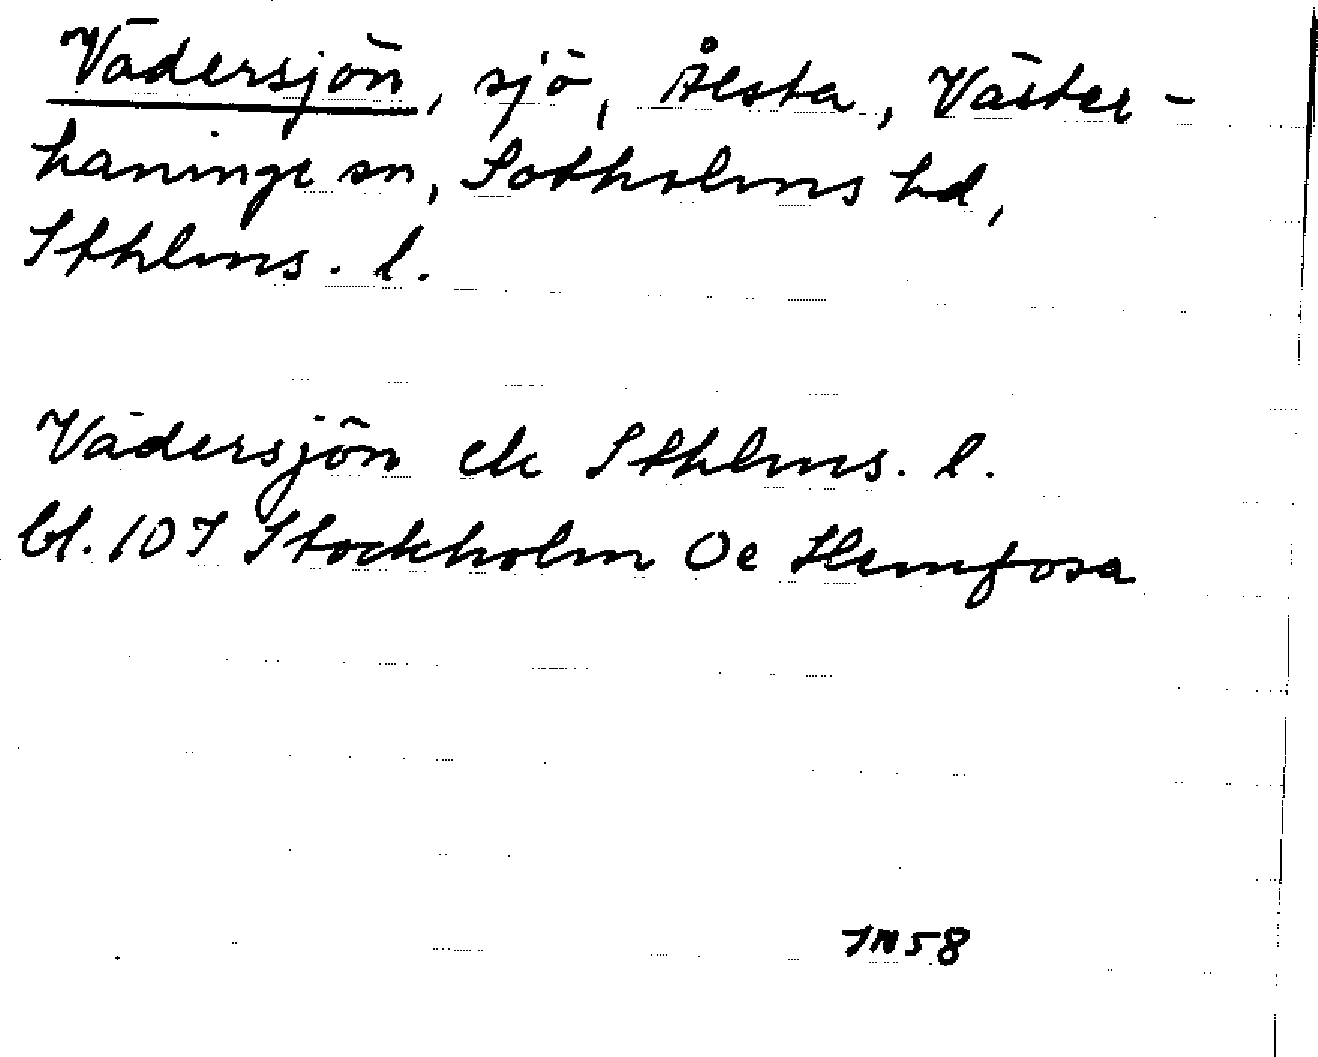 Vädersjön, sjö, Ålsta, Väster-
haninge sn, Sotholms hd,
Sthlms. l.
Vädersjön ek Sthlms. l.
bl. 10I Stockholm Oe Hemfosa
IN58